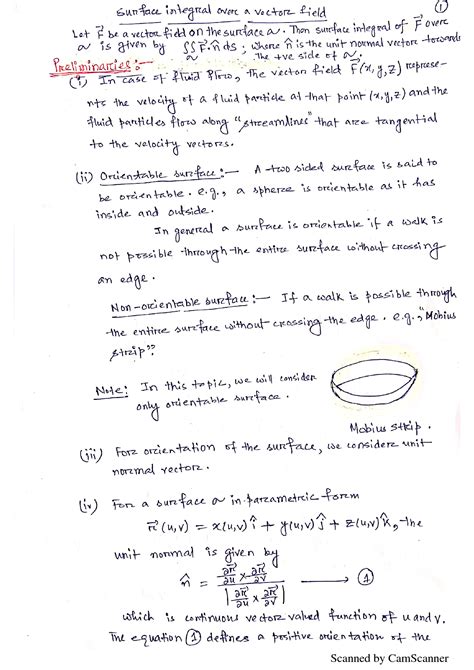 Surface integral over a vector field
(1)
Let F⃗ be a vector field on the surface σ. Then surface integral of F⃗ over
σ is given by ∬_σ F⃗·n̂ ds ; where n̂ is the unit normal vector towards
the +ve side of σ.
Preliminaries:-
(i) In case of fluid flow, the vector field F⃗(x,y,z) represe-
nts the velocity of a fluid particle at that point (x,y,z) and the
fluid particles flow along "streamlines" that are tangential
to the velocity vectors.
(ii) Orientable surface:— A two sided surface is said to
be orientable. e.g., a sphere is orientable as it has
inside and outside.
In general a surface is orientable if a walk is
not possible through the entire surface without crossing
an edge.
Non-orientable surface:— If a walk is possible through
the entire surface without crossing the edge. e.g., "Mobius
strip".
Note: In this topic, we will consider
only orientable surface.
Mobius strip.
(iii) For orientation of the surface, we consider unit
normal vector.
(iv) For a surface σ in parametric form
r⃗(u,v) = x(u,v)î + y(u,v)ĵ + z(u,v)k̂, the
unit normal is given by
n̂ = (∂r⃗/∂u × ∂r⃗/∂v) / |∂r⃗/∂u × ∂r⃗/∂v| ⟶ (1)
which is continuous vector valued function of u and v.
The equation (1) defines a positive orientation of the
Scanned by CamScanner